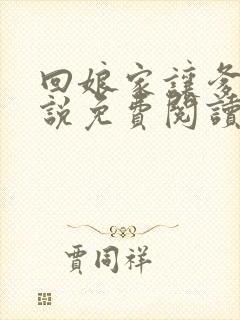 回娘家讓爹
說免費閱讀
賈同祥